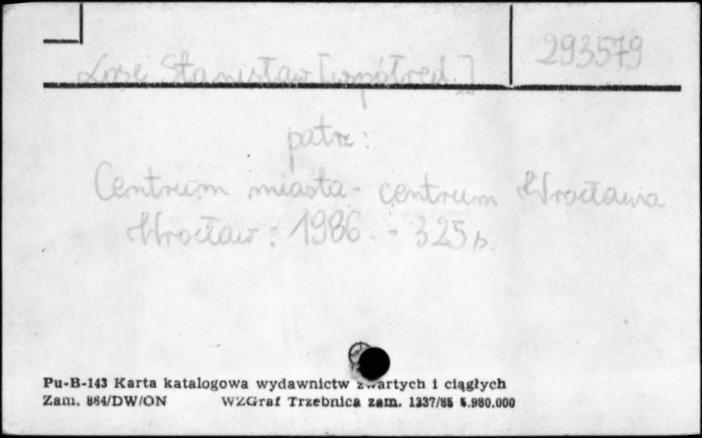 293579
Lose Stanisław [współred.]
patrz:
Centrum miasta - centrum Wrocławia
Wrocław: 1986. - 325 s.
Pu-B-143 Karta katalogowa wydawnictw zwartych i ciągłych
Zam. 864/DW/ON WZGraf Trzebnica zam. 1337/85 5.980.000